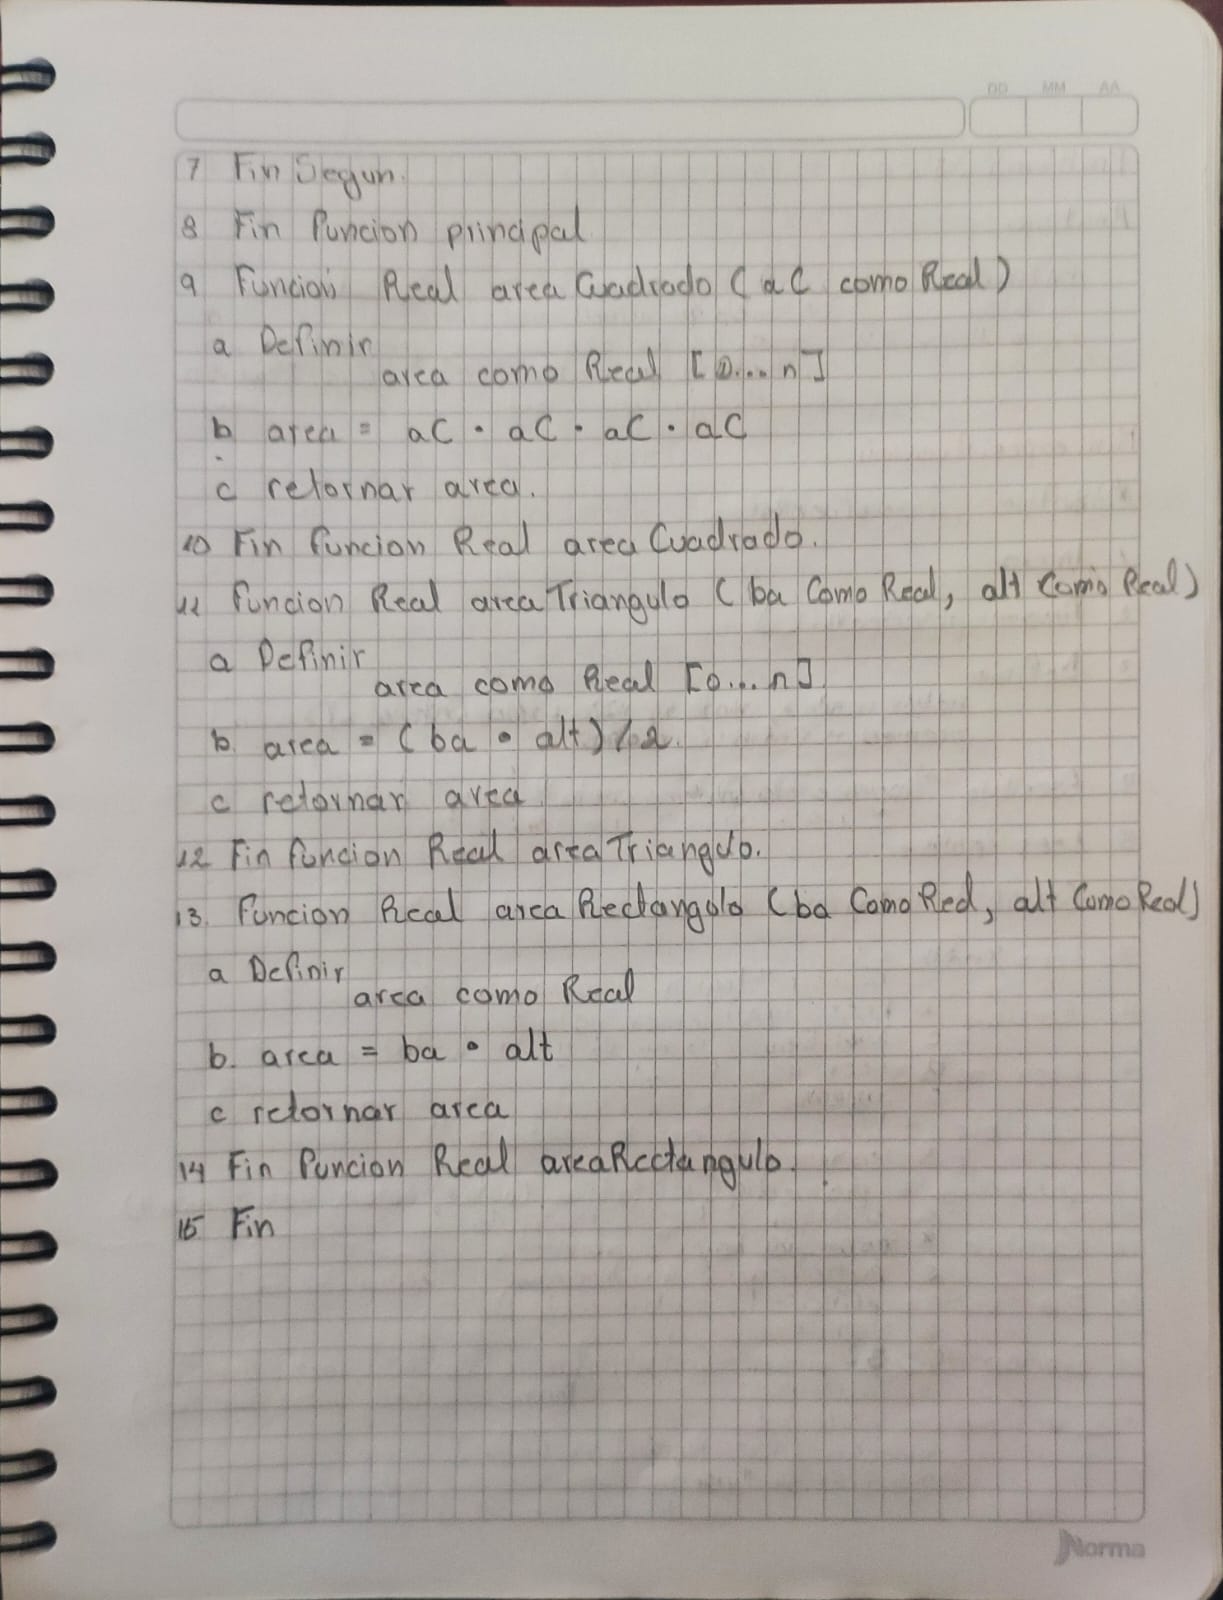 DD MM AA
7 Fin Segun.
8 Fin funcion principal
9 Funcion Real area Cuadrado ( aC como Real )
a Definir
area como Real [0...n]
b area = aC • aC • aC • aC
c retornar area.
10 Fin funcion Real area Cuadrado.
11 funcion Real area Triangulo ( ba Como Real, alt Como Real )
a Definir
area como Real [0...n]
b. area = ( ba • alt ) / 2.
c retornar area
12 Fin funcion Real area Triangulo.
13. Funcion Real area Rectangulo ( ba Como Real, alt Como Real )
a Definir
area como Real
b. area = ba • alt
c retornar area
14 Fin funcion Real areaRectangulo.
15 Fin
Norma